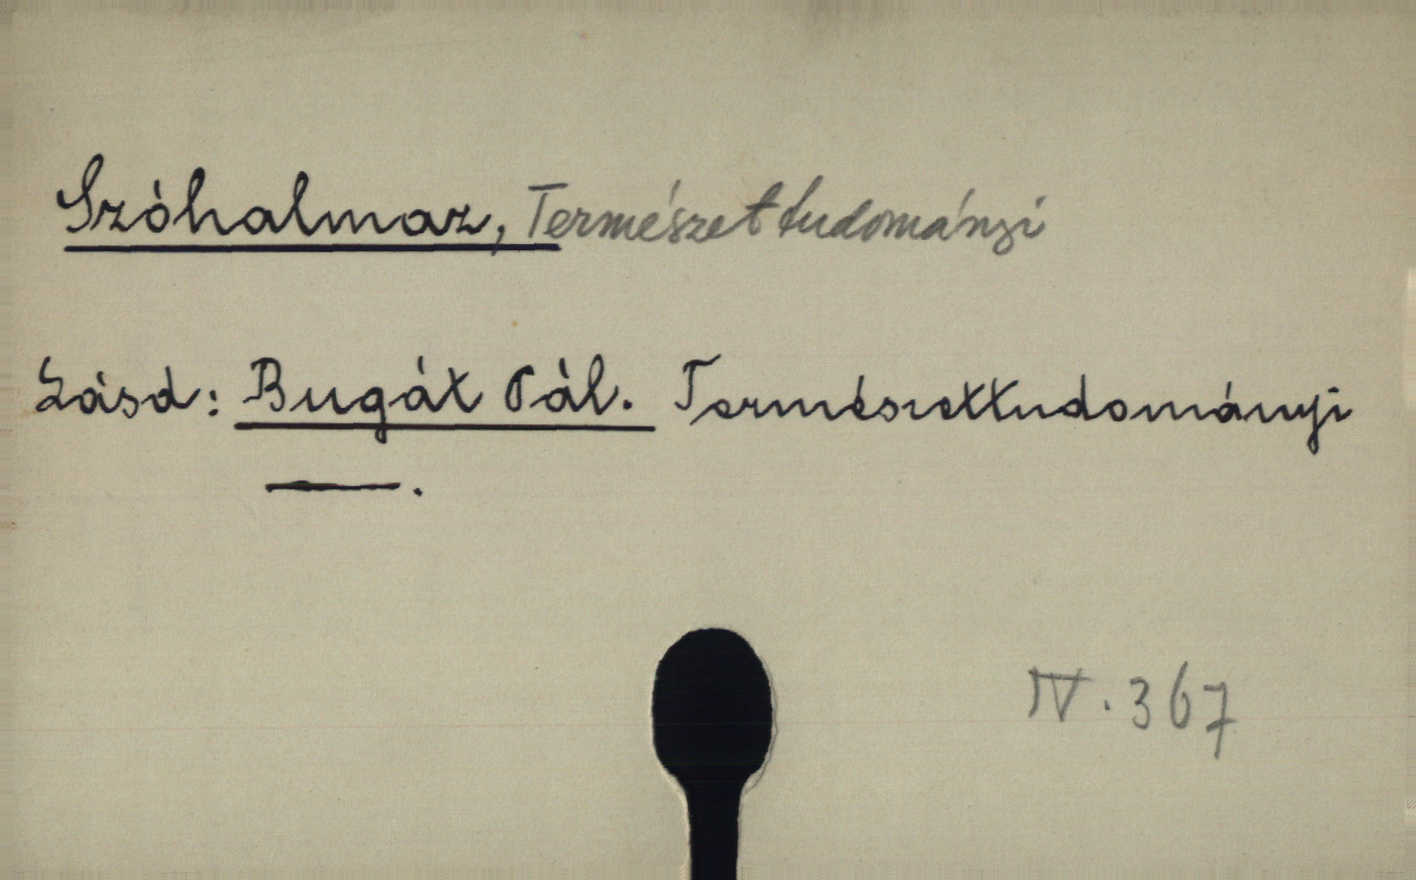 Szóhalmaz, Természettudományi
Lásd: Bugát Pál. Természettudományi
—.
IV. 367